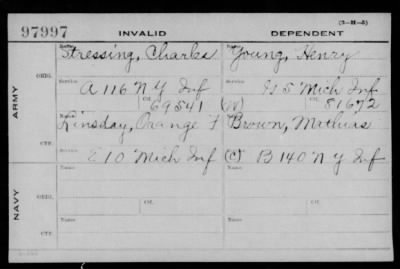 (3-H-5)
97997 INVALID DEPENDENT
Name Stressing, Charles Young, Henry
ARMY
ORIG. Service A 116 N Y Inf 5 Mich Inf
Ctf. 69541 (W) Ctf. 81672
Name Kinsday, Orange F Brown, Mathias
CTF. Service E 10 Mich Inf (C) B 140 N Y Inf
Name Name
NAVY
ORIG. Ctf. Ctf.
Name Name
CTF.